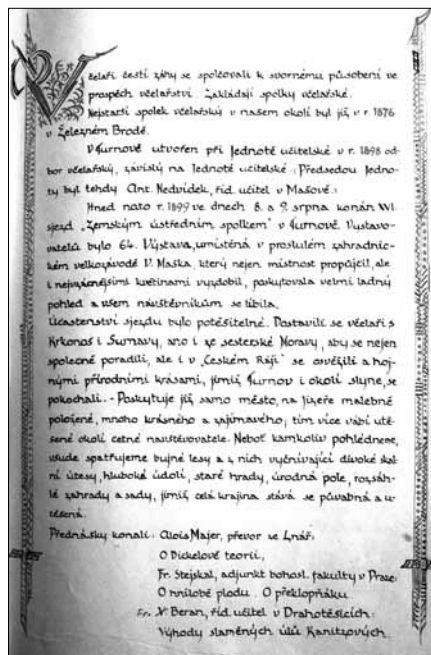 Včelaři čestí záhy se spolčovali k svornému působení ve
prospěch včelařství. Zakládají spolky včelařské.
Nejstarší spolek včelařský v našem okolí byl již v r. 1876
v Železném Brodě.
V Turnově utvořen při Jednotě učitelské v r. 1898 od-
bor včelařský, závislý na Jednotě učitelské. Předsedou Jedno-
ty byl tehdy Ant. Nedvídek, říd. učitel v Mašově.
Hned nato r. 1899 ve dnech 8. a 9. srpna konán XVI.
sjezd „Zemským ústředním spolkem" v Turnově. Vystavo-
vatelů bylo 64. Výstava, umístěná v proslulém zahradnic-
kém velkozávodě V. Maška, který nejen místnost propůjčil, ale
i nejvzácnějšími květinami vyzdobil, poskytovala velmi ladný
pohled a všem návštěvníkům se líbila.
Účastenství sjezdu bylo potěšitelné. Dostavili se včelaři s
Krkonoš i Šumavy, ano i ze sesterské Moravy, aby se nejen
společně poradili, ale i v „Českém Ráji" se osvěžili a hoj-
nými přírodními krásami, jimiž Turnov i okolí slyne, se
pokochali. - Poskytuje již samo město, na Jizeře malebně
položené, mnoho krásného a zajímavého; tím více vábí utě-
šené okolí četné navštěvovatele. Neboť kamkoliv pohlédneme,
všude spatřujeme bujné lesy a z nich vyčnívající divoké skal-
ní útesy, hluboká údolí, staré hrady, úrodná pole, rozsáh-
lé zahrady a sady, jimiž celá krajina stává se půvabná a u-
těšená.
Přednášky konali: Alois Majer, převor ve Lnář:
O Dickelově teorii,
Fr. Stejskal, adjunkt bohosl. fakulty v Praze:
O hnilobě plodu. O překlopňáku
Fr. X. Beran, říd. učitel v Drahotěšicích:
Výhody slaměných úlů Kanitzových.